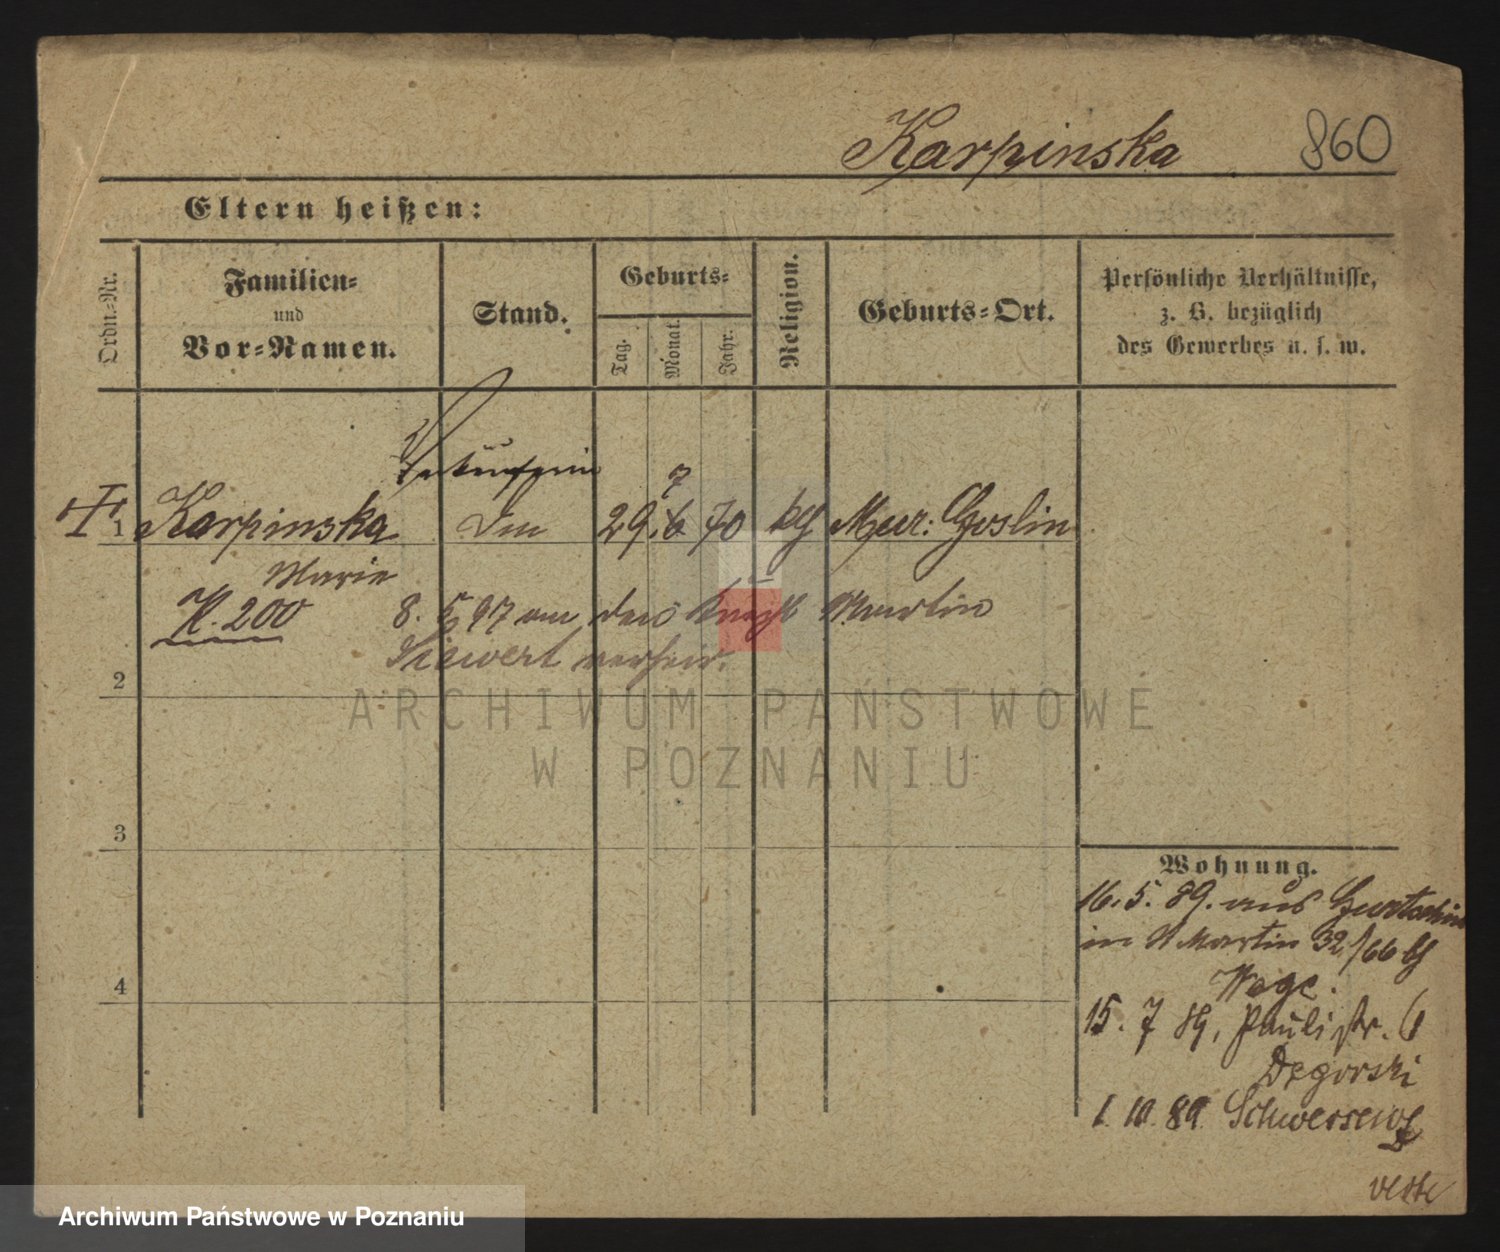 Karpinska 860
Eltern heißen:
Ordn.-Nr.
Familien-
und
Vor-Namen.
Stand.
Geburts-
Tag.
Monat.
Jahr.
Religion.
Geburts-Ort.
Persönliche Verhältnisse,
z. B. bezüglich
des Gewerbes u. s. w.
Verkäuferin
7
1 Karpinska 29. 6. 70 kth Mur: Goslin
Marie
K. 200 8. 5 97 an den Martin
Siewert verheir.
2
3
4
Wohnung.
16. 5. 89. aus Gurtschin
in St Martin 32/66 b/
Wege.
15. 7 89, Paulistr. 6
Degorski
1. 10. 89 Schwersenz
ARCHIWUM PAŃSTWOWE
W POZNANIU
Archiwum Państwowe w Poznaniu